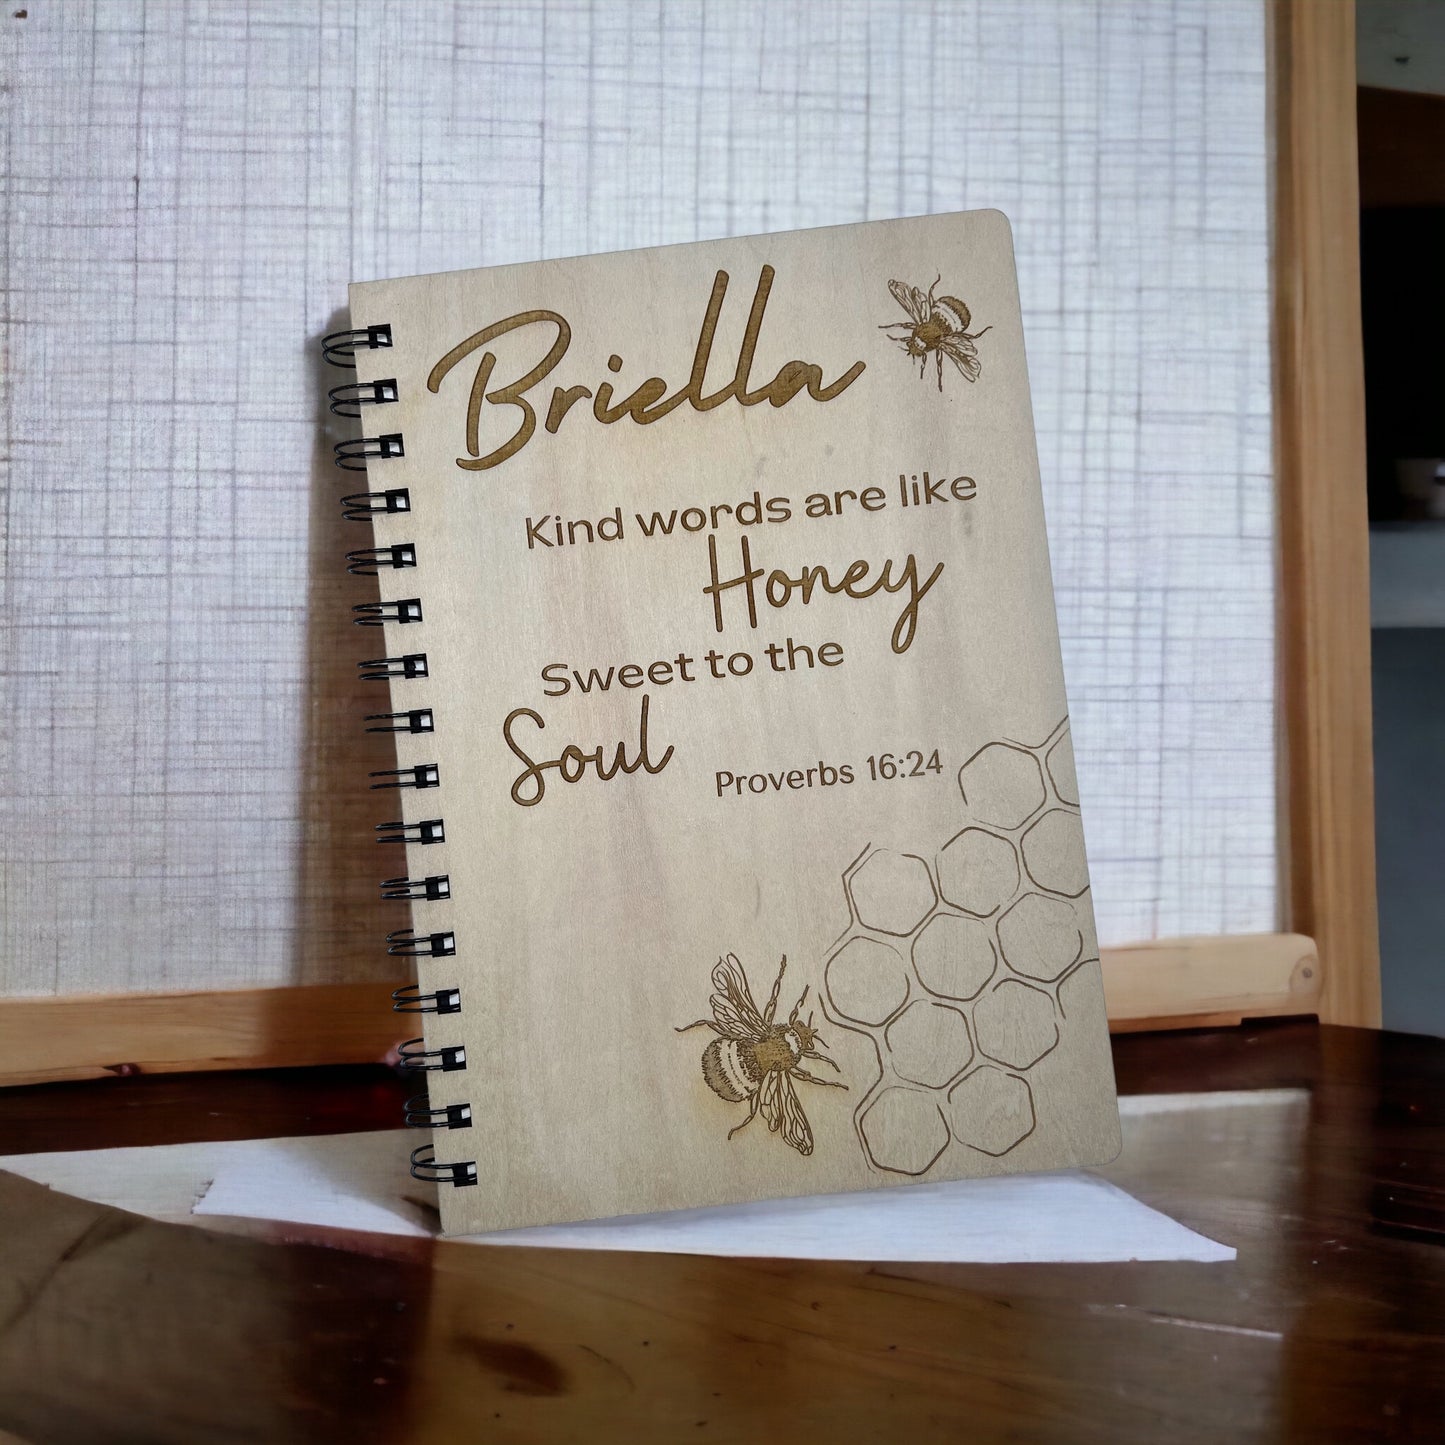 Briella
Kind words are like
Honey
Sweet to the
Soul
Proverbs 16:24